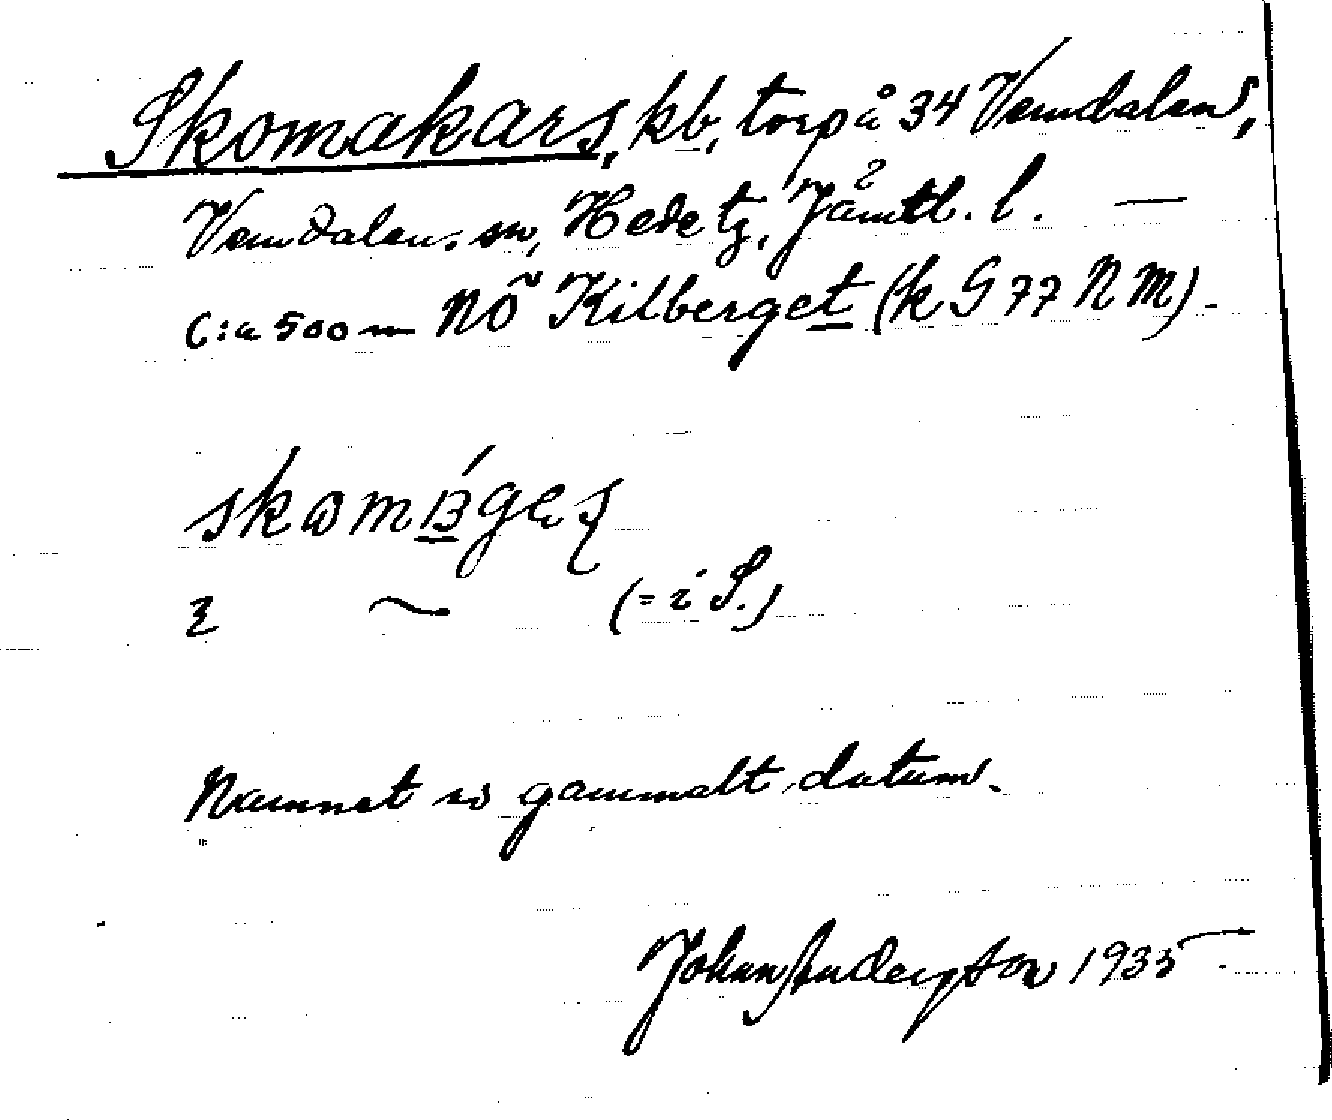 Skomakars, kb, torp å 34 Vemdalen,
Vemdalen. sn, Hede tg, Jämtl. l. —
C:a 500 m NÖ Kilberget (k G 77 N M).
(= i S.)
Namnet av gammalt datum.
Johan Anderson 1935